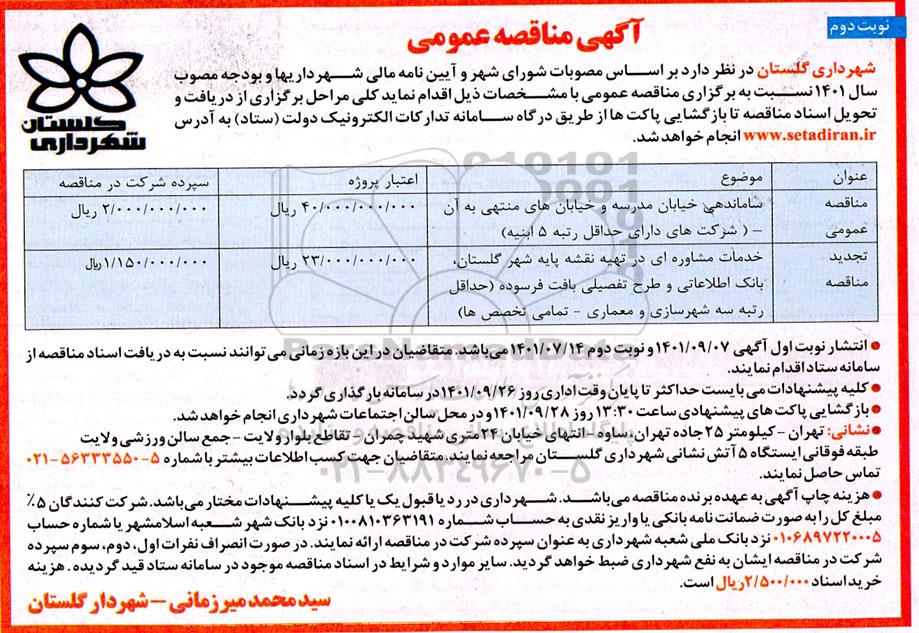 نوبت دوم
آگهی مناقصه عمومی
گلستان
شهرداری
شهرداری گلستان در نظر دارد بر اساس مصوبات شورای شهر و آیین نامه مالی شهرداریها و بودجه مصوب
سال ۱۴۰۱ نسبت به برگزاری مناقصه عمومی با مشخصات ذیل اقدام نماید کلی مراحل برگزاری از دریافت و
تحویل اسناد مناقصه تا بازگشایی پاکت ها از طریق درگاه سامانه تدارکات الکترونیک دولت (ستاد) به آدرس
www.setadiran.ir انجام خواهد شد.
عنوان موضوع اعتبار پروژه سپرده شرکت در مناقصه
مناقصه ساماندهی خیابان مدرسه و خیابان های منتهی به آن ۴۰/۰۰۰/۰۰۰/۰۰۰ ریال ۲/۰۰۰/۰۰۰/۰۰۰ ریال
عمومی – ( شرکت های دارای حداقل رتبه ۵ ابنیه)
تجدید خدمات مشاوره ای در تهیه نقشه پایه شهر گلستان، ۲۳/۰۰۰/۰۰۰/۰۰۰ ریال ۱/۱۵۰/۰۰۰/۰۰۰ ریال
مناقصه بانک اطلاعاتی و طرح تفصیلی بافت فرسوده (حداقل
رتبه سه شهرسازی و معماری – تمامی تخصص ها)
● انتشار نوبت اول آگهی ۱۴۰۱/۰۹/۰۷ و نوبت دوم ۱۴۰۱/۰۷/۱۴ می‌باشد. متقاضیان در این بازه زمانی می توانند نسبت به دریافت اسناد مناقصه از
سامانه ستاد اقدام نمایند.
● کلیه پیشنهادات می بایست حداکثر تا پایان وقت اداری روز ۱۴۰۱/۰۹/۲۶ در سامانه بارگذاری گردد.
● بازگشایی پاکت های پیشنهادی ساعت ۱۳:۳۰ روز ۱۴۰۱/۰۹/۲۸ و در محل سالن اجتماعات شهرداری انجام خواهد شد.
● نشانی: تهران – کیلومتر ۲۵ جاده تهران، ساوه – انتهای خیابان ۲۴ متری شهید چمران – تقاطع بلوار ولایت – جمع سالن ورزشی ولایت
طبقه فوقانی ایستگاه ۵ آتش نشانی شهرداری گلستان مراجعه نمایند. متقاضیان جهت کسب اطلاعات بیشتر با شماره ۵-۵۶۳۳۳۵۵۰-۰۲۱
تماس حاصل نمایند.
● هزینه چاپ آگهی به عهده برنده مناقصه می‌باشد. شهرداری در رد یا قبول یک یا کلیه پیشنهادات مختار می‌باشد. شرکت کنندگان ۵٪
مبلغ کل را به صورت ضمانت نامه بانکی یا واریز نقدی به حساب شماره ۰۱۰۰۸۱۰۳۶۳۱۹۱ نزد بانک شهر شعبه اسلامشهر یا شماره حساب
۰۱۰۶۸۹۷۲۲۰۰۰۵ نزد بانک ملی شعبه شهرداری به عنوان سپرده شرکت در مناقصه ارائه نمایند. در صورت انصراف نفرات اول، دوم، سوم سپرده
شرکت در مناقصه ایشان به نفع شهرداری ضبط خواهد گردید. سایر موارد و شرایط در اسناد مناقصه موجود در سامانه ستاد قید گردیده . هزینه
خرید اسناد ۲/۵۰۰/۰۰۰ ریال است.
سید محمد میرزمانی – شهردار گلستان
ParsNamadData
۰۲۱-۸۸۳۴۹۶۷۰-۵